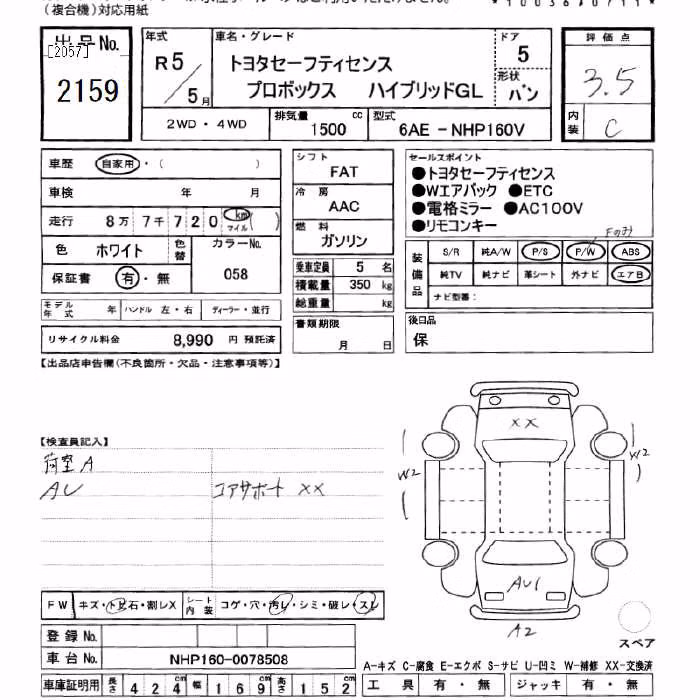 (複合機)対応用紙
出品No.
[2057]
2159
年式
R5/5月
車名・グレード
トヨタセーフティセンス
プロボックス ハイブリッドGL
ドア
5
形状
バン
2WD・4WD
排気量
1500cc
型式
6AE-NHP160V
評価点
3.5
内装
C
車歴 自家用・( )
車検 年 月
走行 8万7千720 km マイル ( )
色 ホワイト 色替
カラーNo.
058
保証書 有・無
モデル年式 年 ハンドル 左・右 ディーラー・並行
リサイクル料金 8,990 円 預託済
シフト
FAT
冷房
AAC
燃料
ガソリン
乗車定員 5 名
積載量 350 kg
総重量 kg
書類期限
月 日
セールスポイント
●トヨタセーフティセンス
●Wエアバック ●ETC
●電格ミラー ●AC100V
●リモコンキー
Fのみ
装備品
S/R 純A/W P/S P/W ABS
純TV 純ナビ 革シート 外ナビ エアB
ナビ型番:
後日品
保
【出品店申告欄(不良箇所・欠品・注意事項等)】
【検査員記入】
荷室 A
AU コアサポート XX
XX
W2 W2
AU1
A2
スペア
FW キズ・トビ石・割レX シート内装 コゲ・穴・汚レ・シミ・破レ・スレ
登録No.
車台No. NHP160-0078508
車庫証明用 長さ 424cm 幅 169cm 高さ 152cm
A-キズ C-腐食 E-エクボ S-サビ U-凹ミ W-補修 XX-交換済
工具 有・無 ジャッキ 有・無